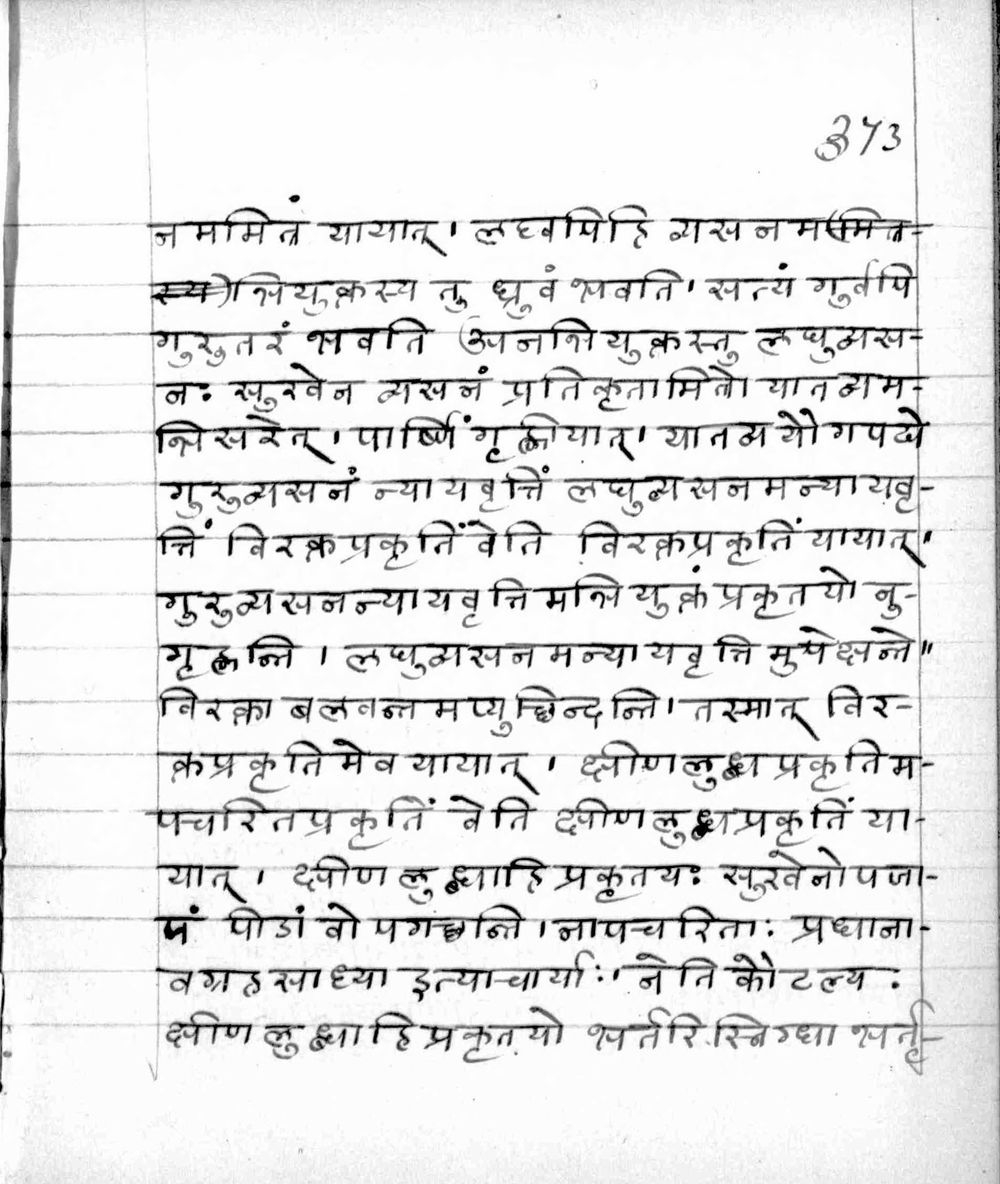 373
नममित्रं यायात् । लघ्वपिहि व्यसनम(मित्र-
स्य)भियुक्तस्य तु ध्रुवं भवति । सत्यं गुर्वपि
गुरुतरं भवति अनभियुक्तस्तु लघुव्यस-
नः सुखेन व्यसनं प्रतिकृतामित्रो यातव्यम-
भिसरेत् । पार्ष्णिं गृह्णीयात् । यातव्ययौगपद्ये
गुरुव्यसनं न्यायवृत्तिं लघुव्यसनमन्यायवृ-
त्तिं विरक्तप्रकृतिं वेति विरक्तप्रकृतिं यायात् ।
गुरुव्यसनन्यायवृत्तिमभियुक्तं प्रकृतयो नु-
गृह्णन्ति । लघुव्यसनमन्यायवृत्तिमुपेक्षन्ते ॥
विरक्ता बलवन्तमप्युच्छिन्दन्ति । तस्मात् विर-
क्तप्रकृतिमेव यायात् । क्षीणलुब्धप्रकृतिम-
पचरितप्रकृतिं वेति क्षीणलुब्धप्रकृतिं या-
यात् । क्षीणलुब्धाहि प्रकृतयः सुखेनोपजा-
पं पीडां वोपगच्छन्ति । नापचरिताः प्रधाना-
वग्रहसाध्या इत्याचार्याः । नेति कौटल्य.
क्षीणलुब्धाहि प्रकृतयो भर्तरि स्निग्धा भर्तृ-